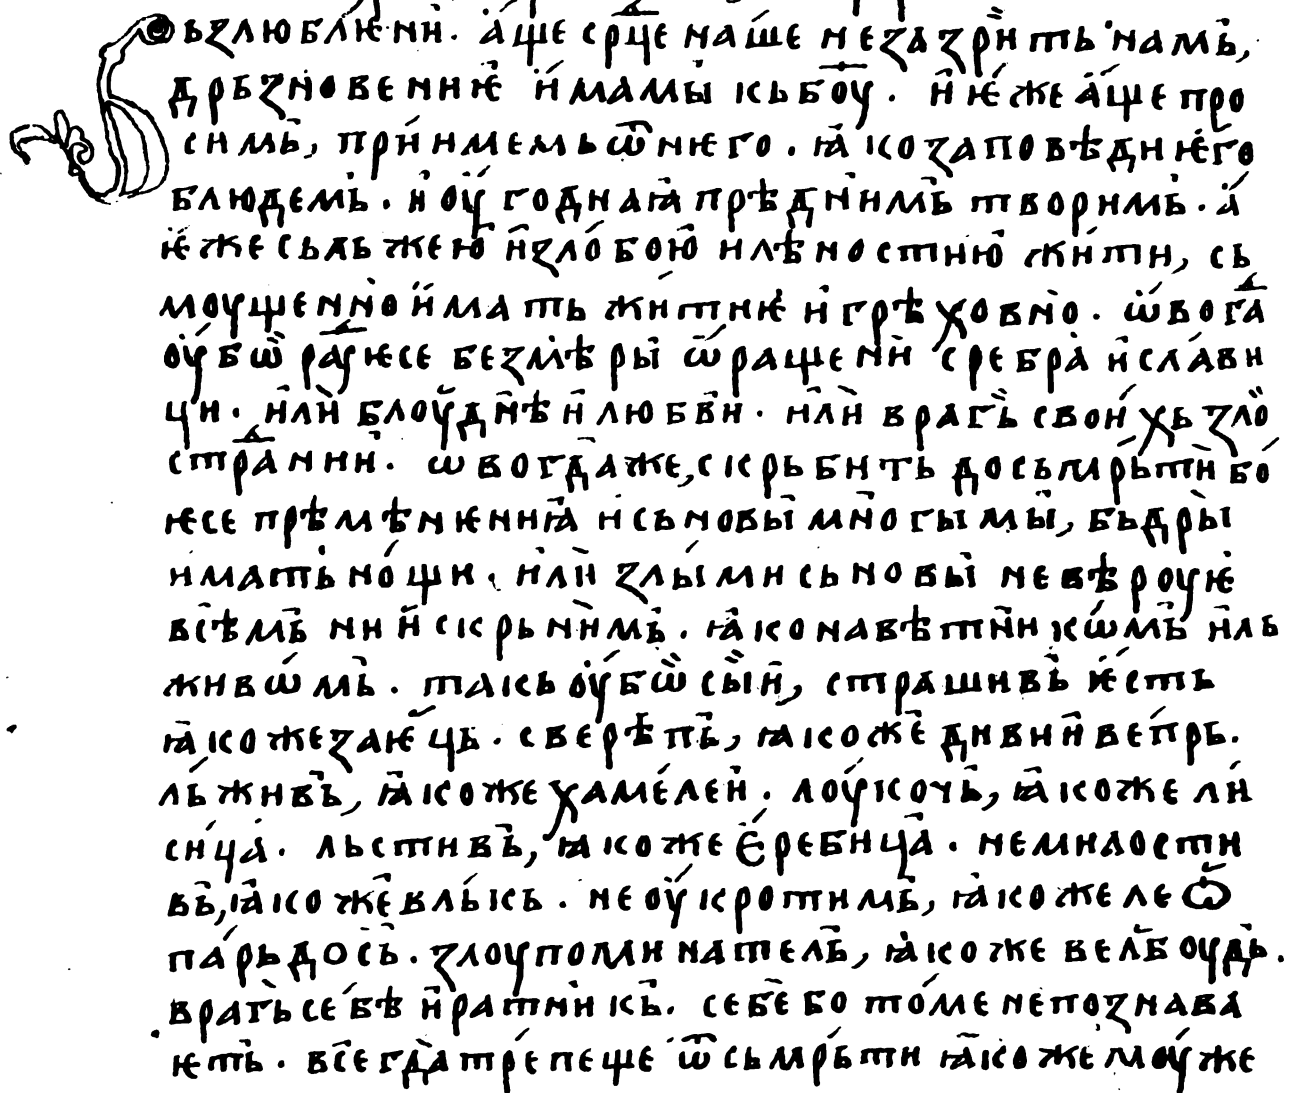 Вьзлюблѥнїи. а҆́ще ср҃це на́ше не за́зрꙵить намь,
дрьзновенїѥ и҆́мамы къ бо҃у. и҆ ѥ҆́же а҆́ще про
симь, прїи́мемь ѿ нѥго. ꙗ҆́ко заповѣди ѥ҆го̀
блюдемь. и҆ оу҆́годнаꙗ прѣд нимь творимь. а҆́
ѥ҆́же сь лъжею и҆ зло́бою и҆ лѣностїю жи́ти, сь
моущенно и҆́мать жи́тиѥ и҆ грѣховно. ѡ҆вога҃
оу҆́бѡ ра҃ѥсе без мѣры ѡ҆бращени сребра̀ и҆ сла́ви
ци. и҆ли блоу́днѣи любви. и҆ли врагь свои́хь зло
стра҃нїи. ѡвогда же, скрьбить до сьмрь́ти бо́
ѥсе прѣмѣнѥнїꙗ и҆ сьновы мно́гы мы, бьдры
имать но́щи. и҆ли злы́ми сьновы не вѣроуѥ
всѣмь нїи҆скрьнимь. ꙗ҆́ко навѣтникѡ́мь и҆ ль
живѡ́мь. такь оу҆́бѡ сы́и, страшивь ѥ҆́сть
ꙗ҆́коже заѥць. сверѣпь, ꙗ҆́коже диви́и ве́прь.
ль́живь, ꙗ҆́коже хамеле́и. лоу́кочь, ꙗ҆́коже ли
си́ца. льстивь, ꙗ҆коже є҆́ребица. немилости
вь, ꙗ҆́коже вль́кь. неоу҆́кротимь, ꙗ҆́коже леѡ҆
па́рьдось. злоупоминатель, ꙗ҆́коже вельбоудь.
врагь себѣ и҆ ратникь. себе бо то́ме не познава
ѥть. всегда тре́пеще ѿ сьмрь́ти ꙗ҆́коже моу́же